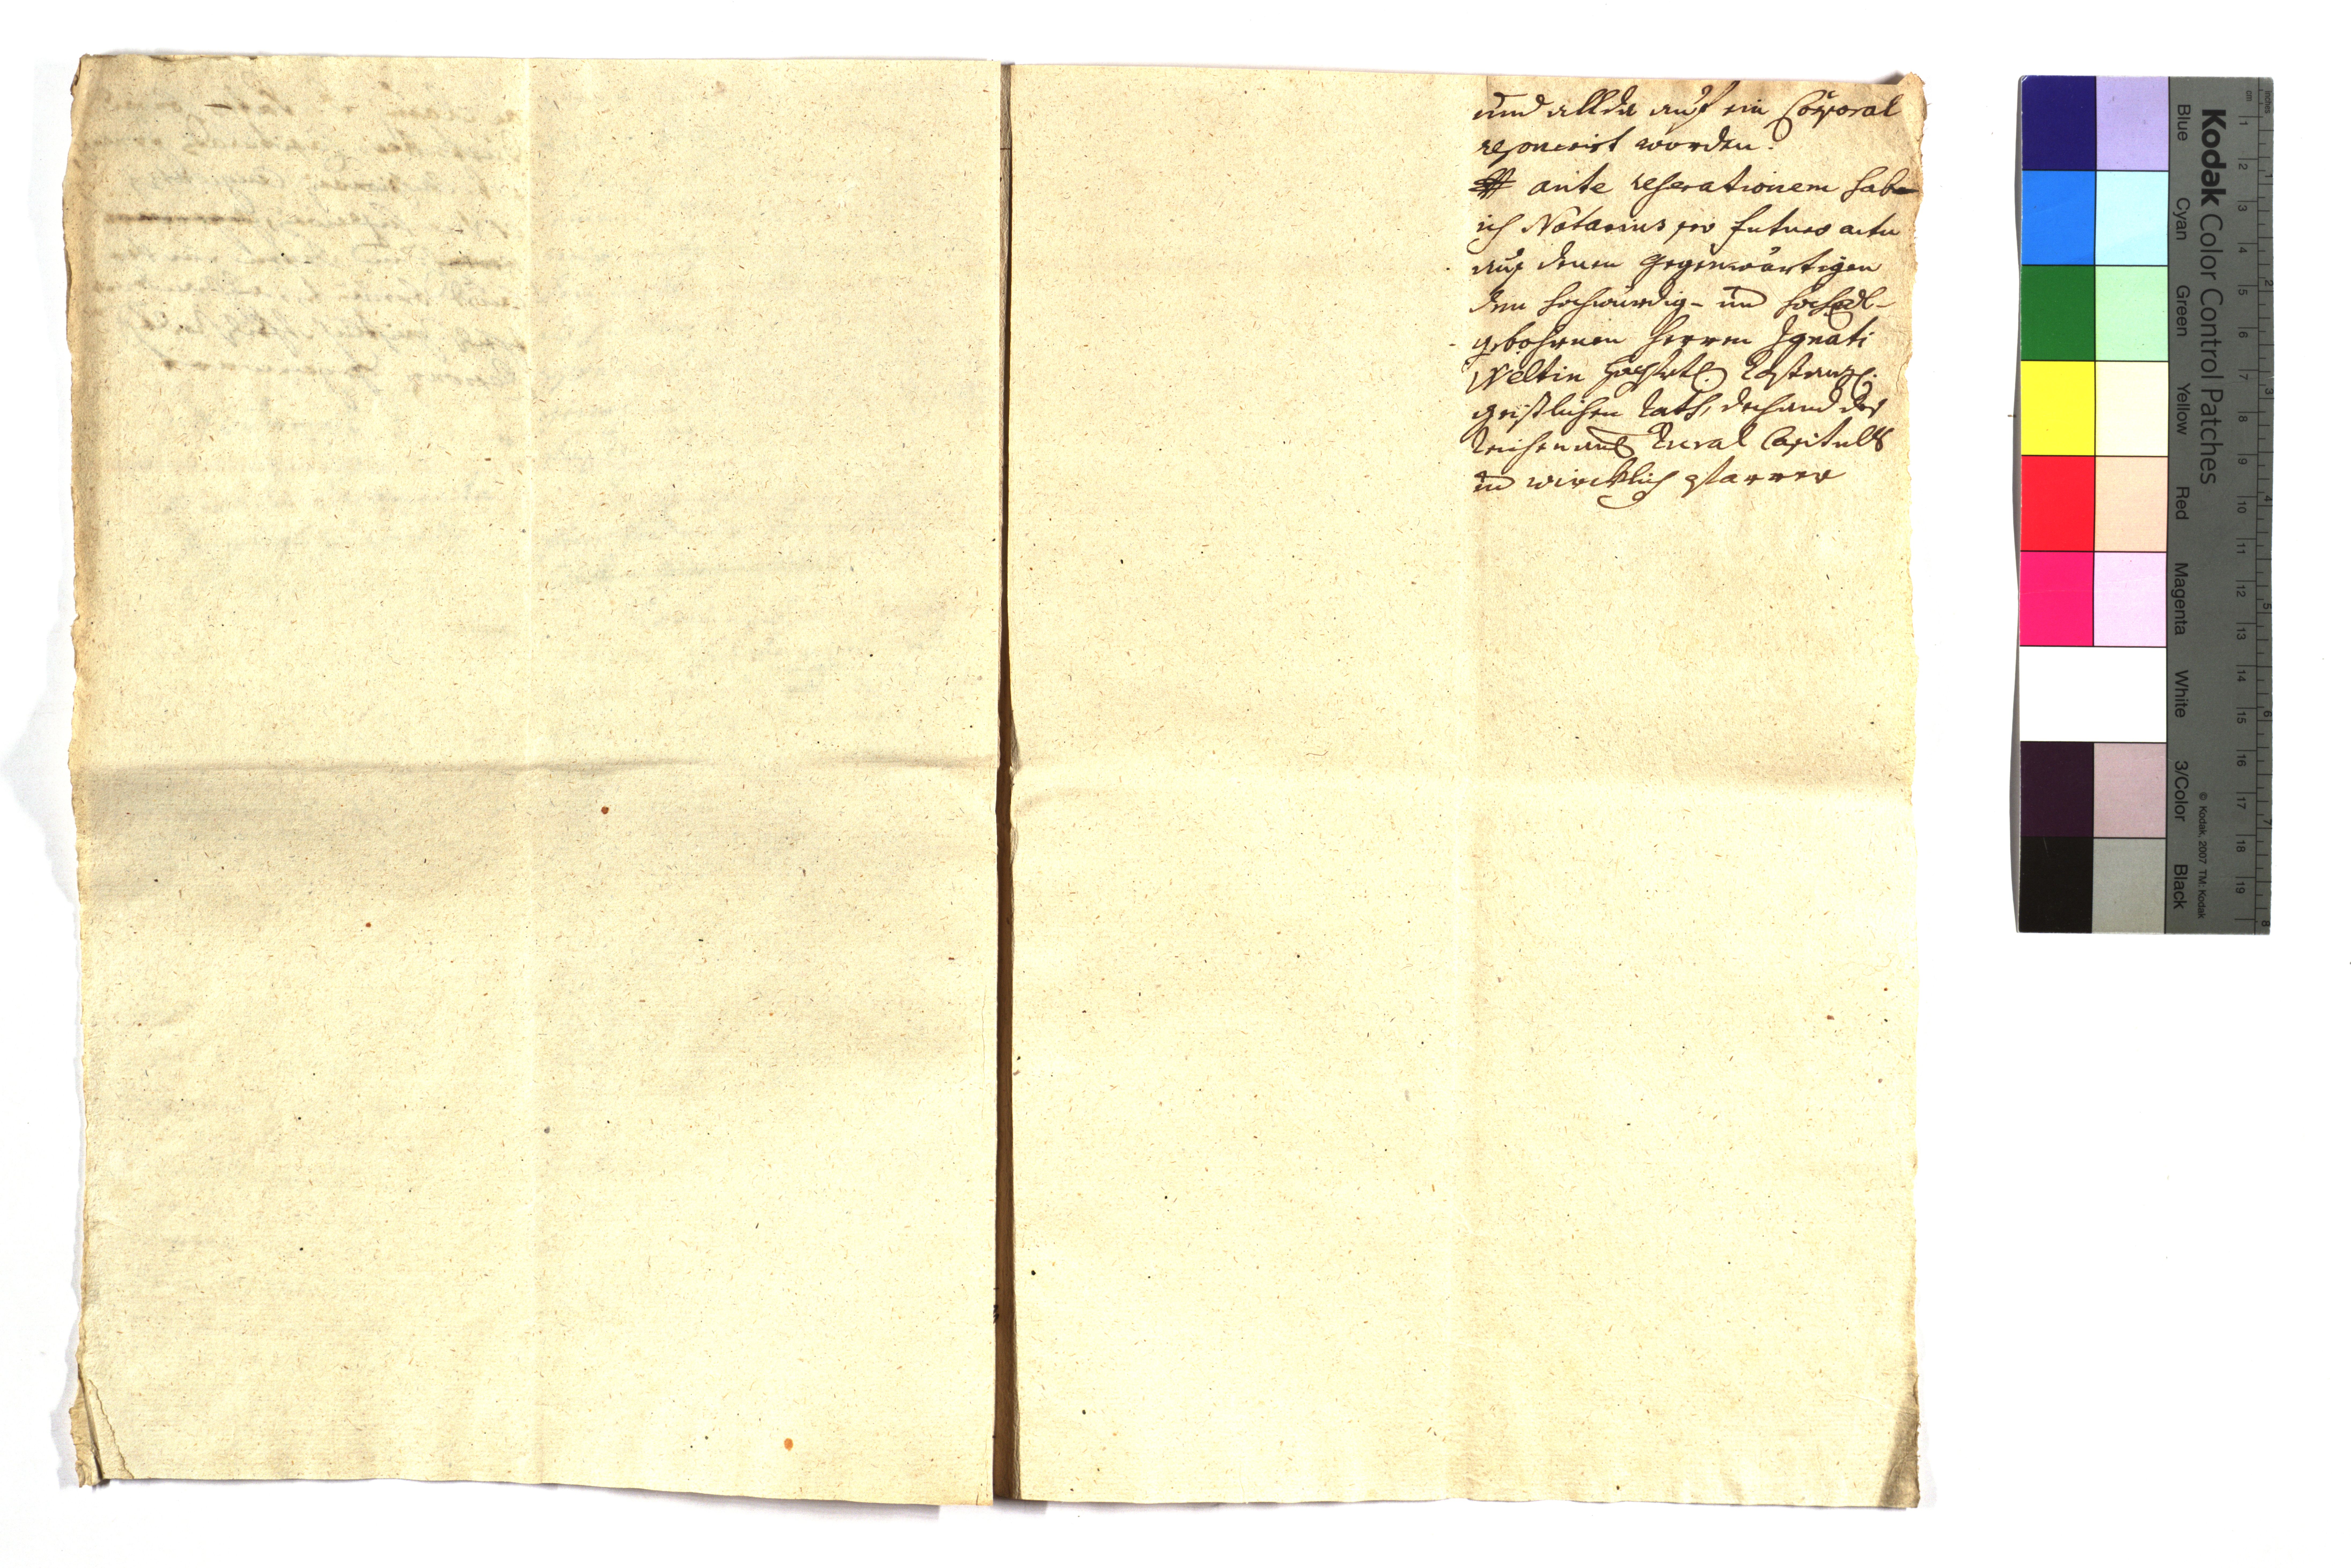 und allda auf ein Corporal
reponirt worden.
ante reserationem habe
ich Notarius pro futuro actu
auß denen gegenwärtigen
den hochwürdig- und hochedl-
gebohrnen Herren Ignati
Weltin hochfrtl. Costanzl.
geistlichen Rath, dechand des
Rural Capituls
und wircklich pfarrer
Kodak Color Control Patches
Blue Cyan Green Yellow Red Magenta White 3/Color Black
© Kodak, 2007 TM: Kodak
inches 1 2 3 4 5 6 7 8
cm 1 2 3 4 5 6 7 8 9 10 11 12 13 14 15 16 17 18 19